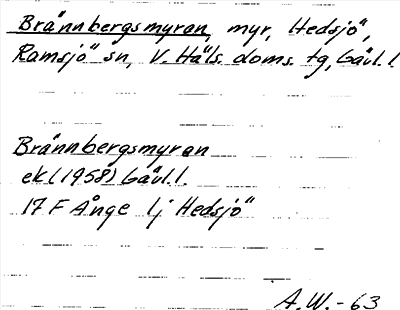 Brännbergsmyran, myr, Hedsjö,
Ramsjö sn, V. Häls. doms. tg, Gävl. l.
Brännbergsmyran
ek (1958) Gävl. l.
17 F Ånge lj Hedsjö
A.W. - 63